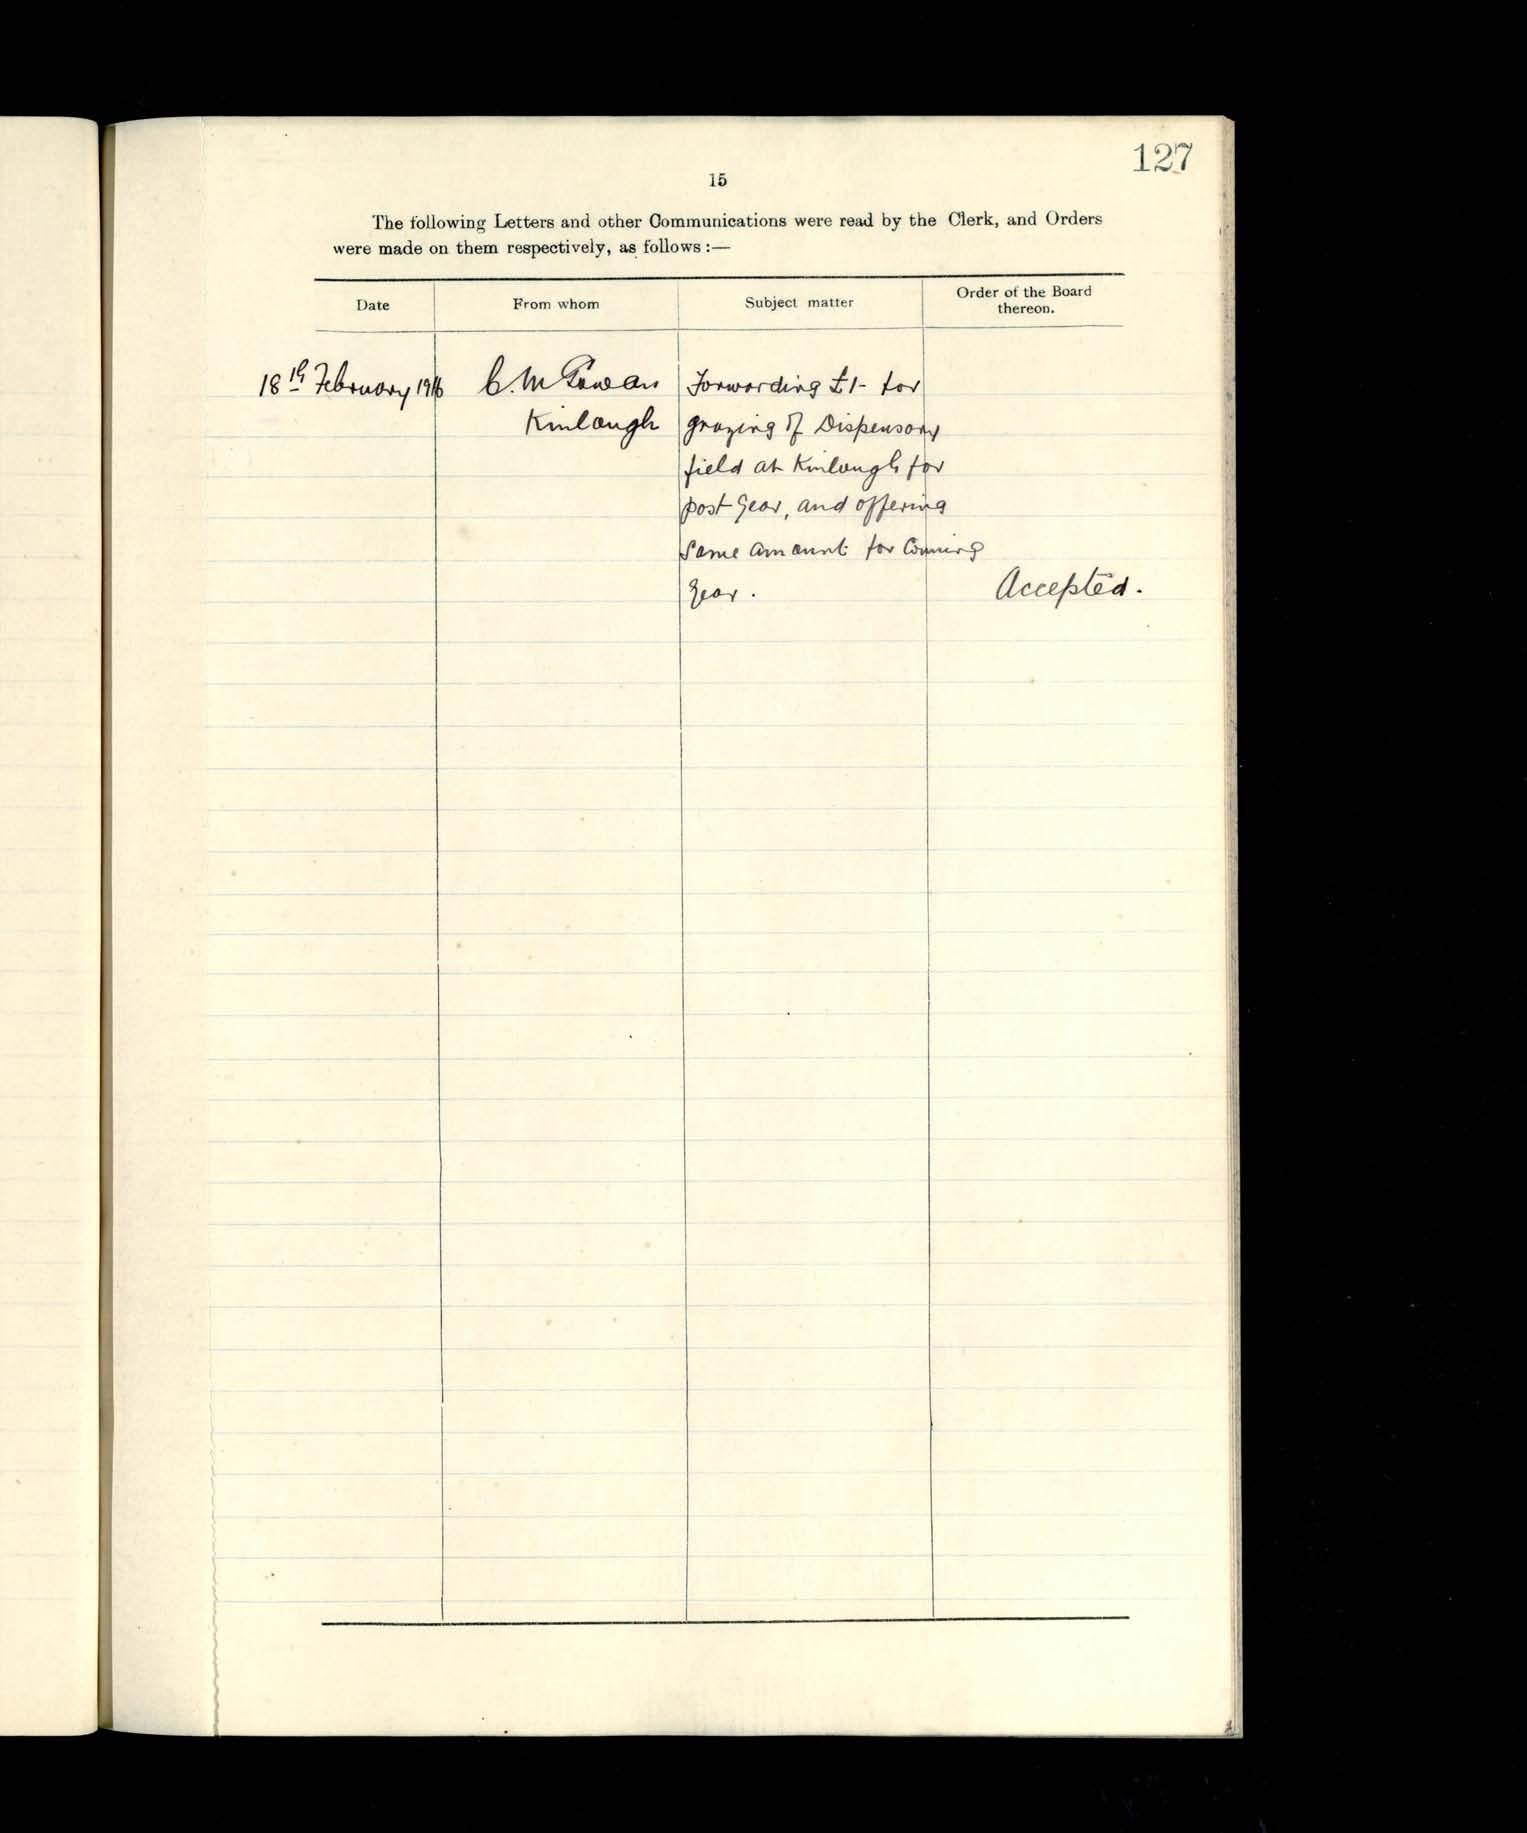 127
15
The following Letters and other Communications were read by the Clerk, and Orders
were made on them respectively, as follows :—
Date
From whom
Subject matter
Order of the Board
thereon.
18th February 1916
C. McGowan
Kinlough
Forwarding £1- for
grazing of Dispensary
field at Kinlough for
past year, and offering
same amount for coming
year.
Accepted.